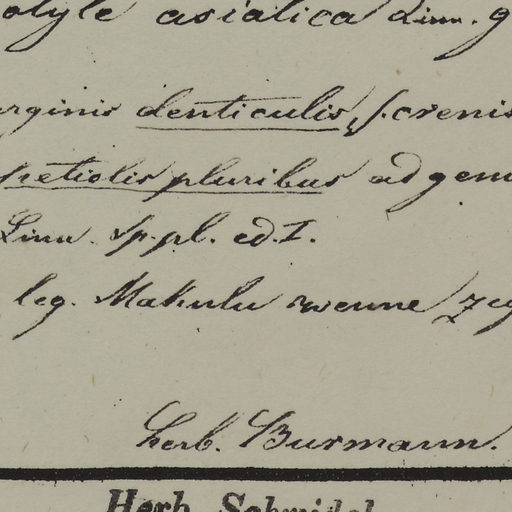 otyle asiatica Linn. g
arginis denticulis, s. crenis
petiolis pluribus ad gem
Linn. sp. pl. ed. I.
leg. Makulu weune zey
herb. Burmann.
Herb. Schmidel